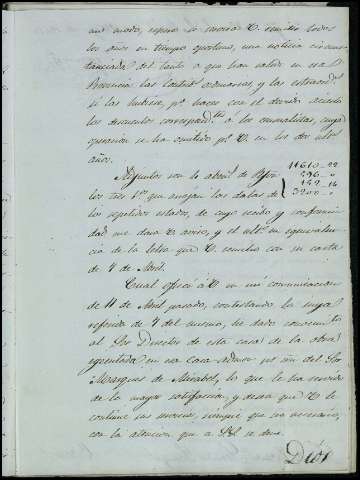 mo modo, espero se sirva V. remitir todos
los años en tiempo oportuno, una noticia circuns-
tanciada del tanto a que han salido en esa
Provincia las Contribs ordinarias, y las estraord.s
si las hubiere, pa hacer con el devido acierto
los descuentos correspond.tes a los censualistas, cuya
operacion se ha omitido pr V. en los dos ultos
años.
Adjuntos son le abonl de
11610..22
296..0
los tres rs que arrojan las datas de
142..16
3200..0
los repetidos estados, de cuyo recibo y conformi-
dad me dara V. aviso, y el ulto en equivalen-
cia de la letra que V. remitio con su carta
de 7 de Abril.
Cual ofreci a V en mi comunicacion
de 11 de Abril pasado, contestando la suya
referida de 7 del mismo, he dado conocimto
al Sor Director de esta casa de la obra
egecutada en esa Casa
del Sor
Marques de Mirabel, lo que le ha servido
de la mayor satisfaccion, y desea que V. le
continue sus servicios, siempre que sea necesario,
con la atencion que a S.E. se deve.
Dios